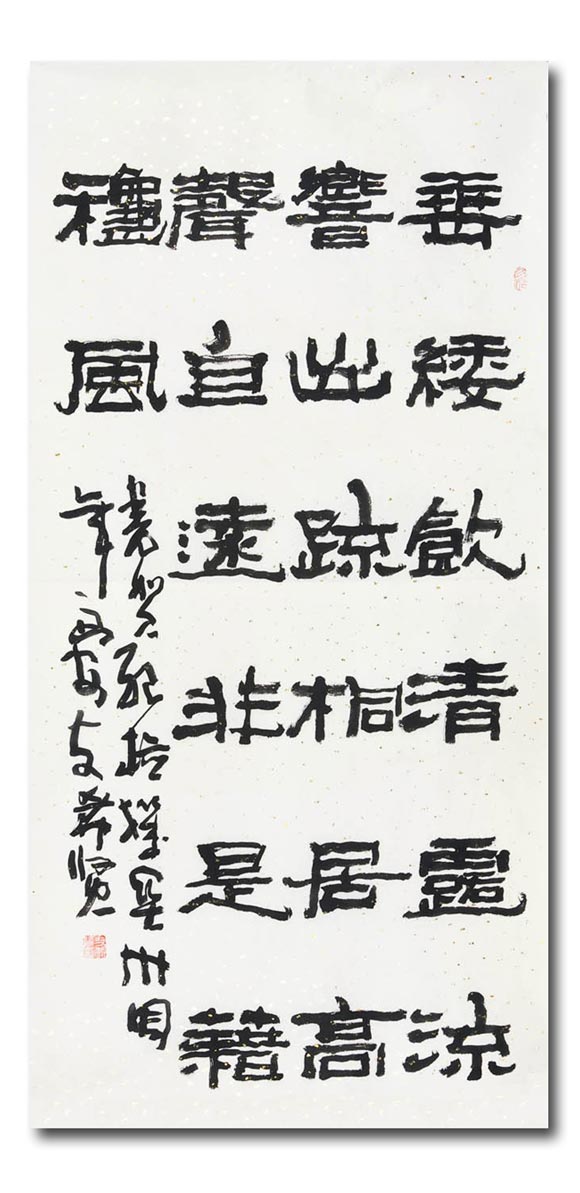 垂緌飲清露流
響出疏桐居高
聲自遠非是藉
龝風
年 希賢